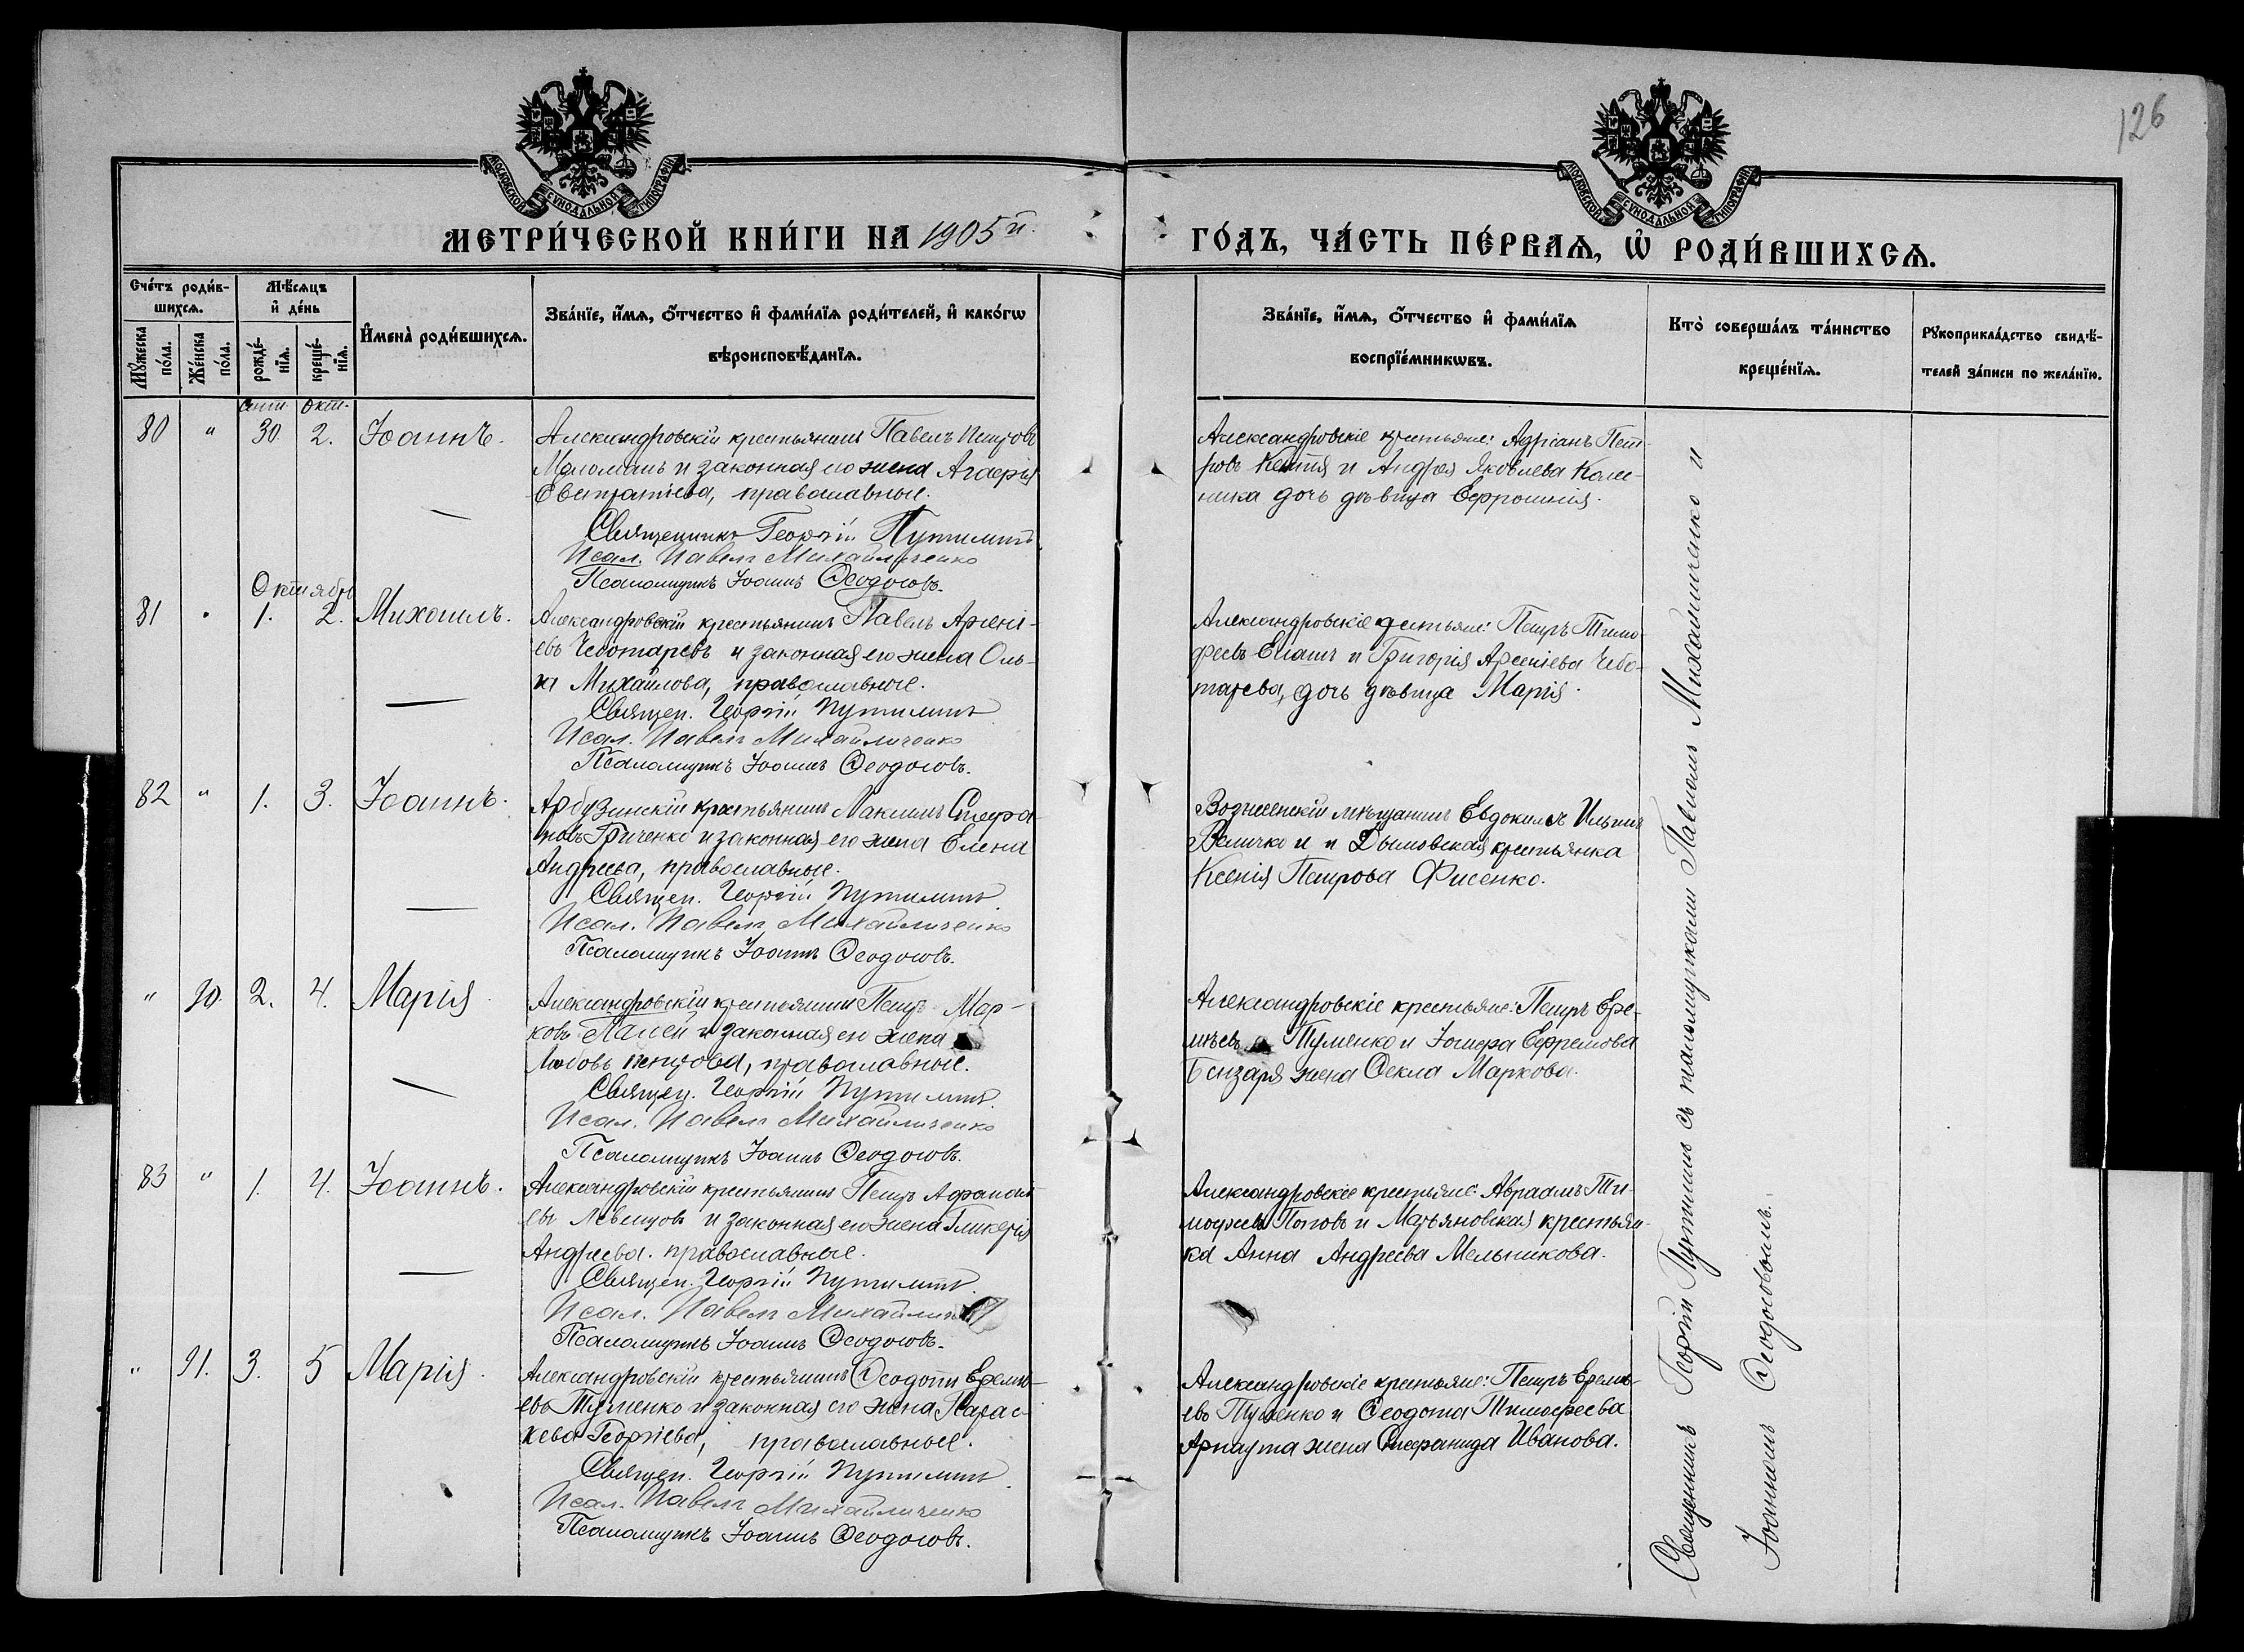 126
МОСКОВСКОЙ СѴНОДАЛЬНОЙ ТИПОГРАФІИ
МОСКОВСКОЙ СѴНОДАЛЬНОЙ ТИПОГРАФІИ
МЕТРИ́ЧЕСКОЙ КНИ́ГИ НА 1905й.
ГО́ДЪ, ЧА́СТЬ ПЕ́РВАѦ, Ѡ҆ РОДИ́ВШИХСѦ.
Сче́тъ роди́в-
шихсѧ.
Мꙋ́жеска по́ла.
Же́нска по́ла.
Мѣ́сѧцъ
и҆ де́нь
рожде́-
нїѧ.
креще́-
нїѧ.
И҆мена̀ роди́вшихсѧ.
Зва́нїе, и҆́мѧ, ѻ҆́тчество и҆ фами́лїѧ роди́телей, и҆ како́гѡ
вѣроисповѣ́данїѧ.
Зва́нїе, и҆́мѧ, ѻ҆́тчество и҆ фами́лїѧ
воспрїе́мникѡвъ.
Кто̀ соверша́лъ та́инство
креще́нїѧ.
Рꙋкоприкла́дство свидѣ́-
телей за́писи по жела́нїю.
Сент. Окт.
80 " 30. 2. Іоаннъ.
Александровскій крестьянинъ Павелъ Петровъ
Маломанъ и законная его жена Агаѳрія
Евстратіева, православные.
Священникъ Георгій Путилинъ
Псал. Павелъ Михайличенко
Псаломщикъ Іоаннъ Ѳеодосовъ.
Александровскіе крестьяне: Адріанъ Пет-
ровъ и Андрея Яковлева Коле-
ника дочь дѣвица Ефросинія.
Октябрь
81 " 1. 2. Михаилъ.
Александровскій крестьянинъ Павелъ Арсені-
евъ Чеботаревъ и законная его жена Оль-
га Михайлова, православные.
Священ. Георгій Путилинъ
Псал. Павелъ Михайличенко
Псаломщикъ Іоаннъ Ѳеодосовъ.
Александровскіе крестьяне: Петръ Тимо-
феевъ и Григорія Арсеніева Чебо-
тарева, дочь дѣвица Марія.
82 " 1. 3. Іоаннъ.
Арбузинскій крестьянинъ Максимъ Стефа-
новъ Гриченко и законная его жена Елена
Андреева, православные.
Священ. Георгій Путилинъ
Псал. Павелъ Михайличенко
Псаломщикъ Іоаннъ Ѳеодосовъ.
Вознесенскій мѣщанинъ Евдокимъ Ильинъ
Величко и и Дымовская крестьянка
Ксенія Петрова Фисенко.
" 90. 2. 4. Марія.
Александровскій крестьянинъ Петръ Мар-
ковъ Палей и законная его жена
Любовь Петрова, православные.
Священ. Георгій Путилинъ.
Псал. Павелъ Михайличенко
Псаломщикъ Іоаннъ Ѳеодосовъ.
Александровскіе крестьяне: Петръ Ере-
мѣевъ Туменко и Ефремова
Бензаря жена Ѳекла Маркова.
83 " 1. 4. Іоаннъ.
Александровскій крестьянинъ Петръ Афанасі-
евъ Левенцовъ и законная его жена Гликерія
Андреева. православные.
Священ. Георгій Путилинъ.
Псал. Павелъ Михайличенко
Псаломщикъ Іоаннъ Ѳеодосовъ.
Александровскіе крестьяне: Авраамъ Ти-
мофеевъ Поповъ и Марьяновская крестьян-
ка Анна Андреева Мельникова.
" 91. 3. 5 Марія.
Александровскій крестьянинъ Ѳеодотъ Еремѣ-
евъ Туменко и законная его жена Парас-
кева Георгіева, православные.
Священ. Георгій Путилинъ.
Псал. Павелъ Михайличенко
Псаломщикъ Іоаннъ Ѳеодосовъ.
Александровскіе крестьяне: Петръ Еремѣ-
евъ Туменко и Ѳеодота Тимофеева
Арнаута жена Стефанида Иванова.
Священникъ Георгій Путилинъ съ псаломщиками Павломъ Михайличенко и
Іоанномъ Ѳеодосовымъ.